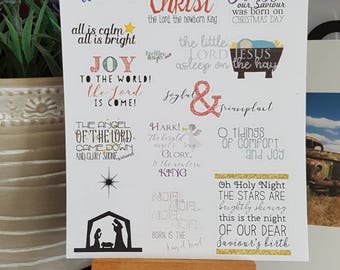 Christ
the Lord, the newborn King
our Savior
was born on
CHRISTMAS DAY
all is calm
all is bright
the little
LORD JESUS
asleep on the hay
JOY
TO THE WORLD!
the Lord
IS COME!
Joyful
&
triumphant
THE ANGEL
OF THE LORD
CAME DOWN
AND GLORY SHONE
HARK!
GLORY
KING
O TIDINGS
OF COMFORT
and JOY
BORN IS THE
OH HOLY NIGHT
THE STARS ARE
brightly shining
this is the
NIGHT
OF OUR DEAR
Saviour's birth